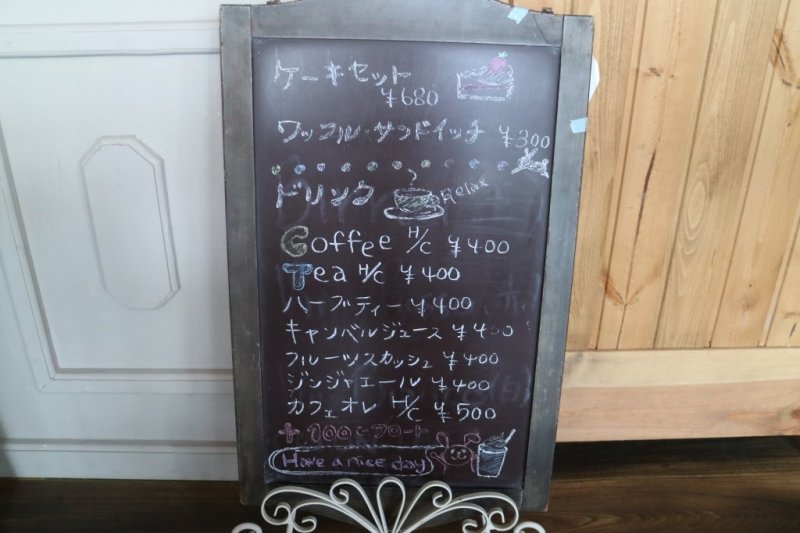 ケーキセット
¥680
ワッフル・サンドイッチ ¥300
ドリンク Relax
Coffee H/C ¥400
Tea H/C ¥400
ハーブティー ¥400
キャンベルジュース ¥400
フルーツスカッシュ ¥400
ジンジャエール ¥400
カフェオレ H/C ¥500
+100でフロート
Have a nice day